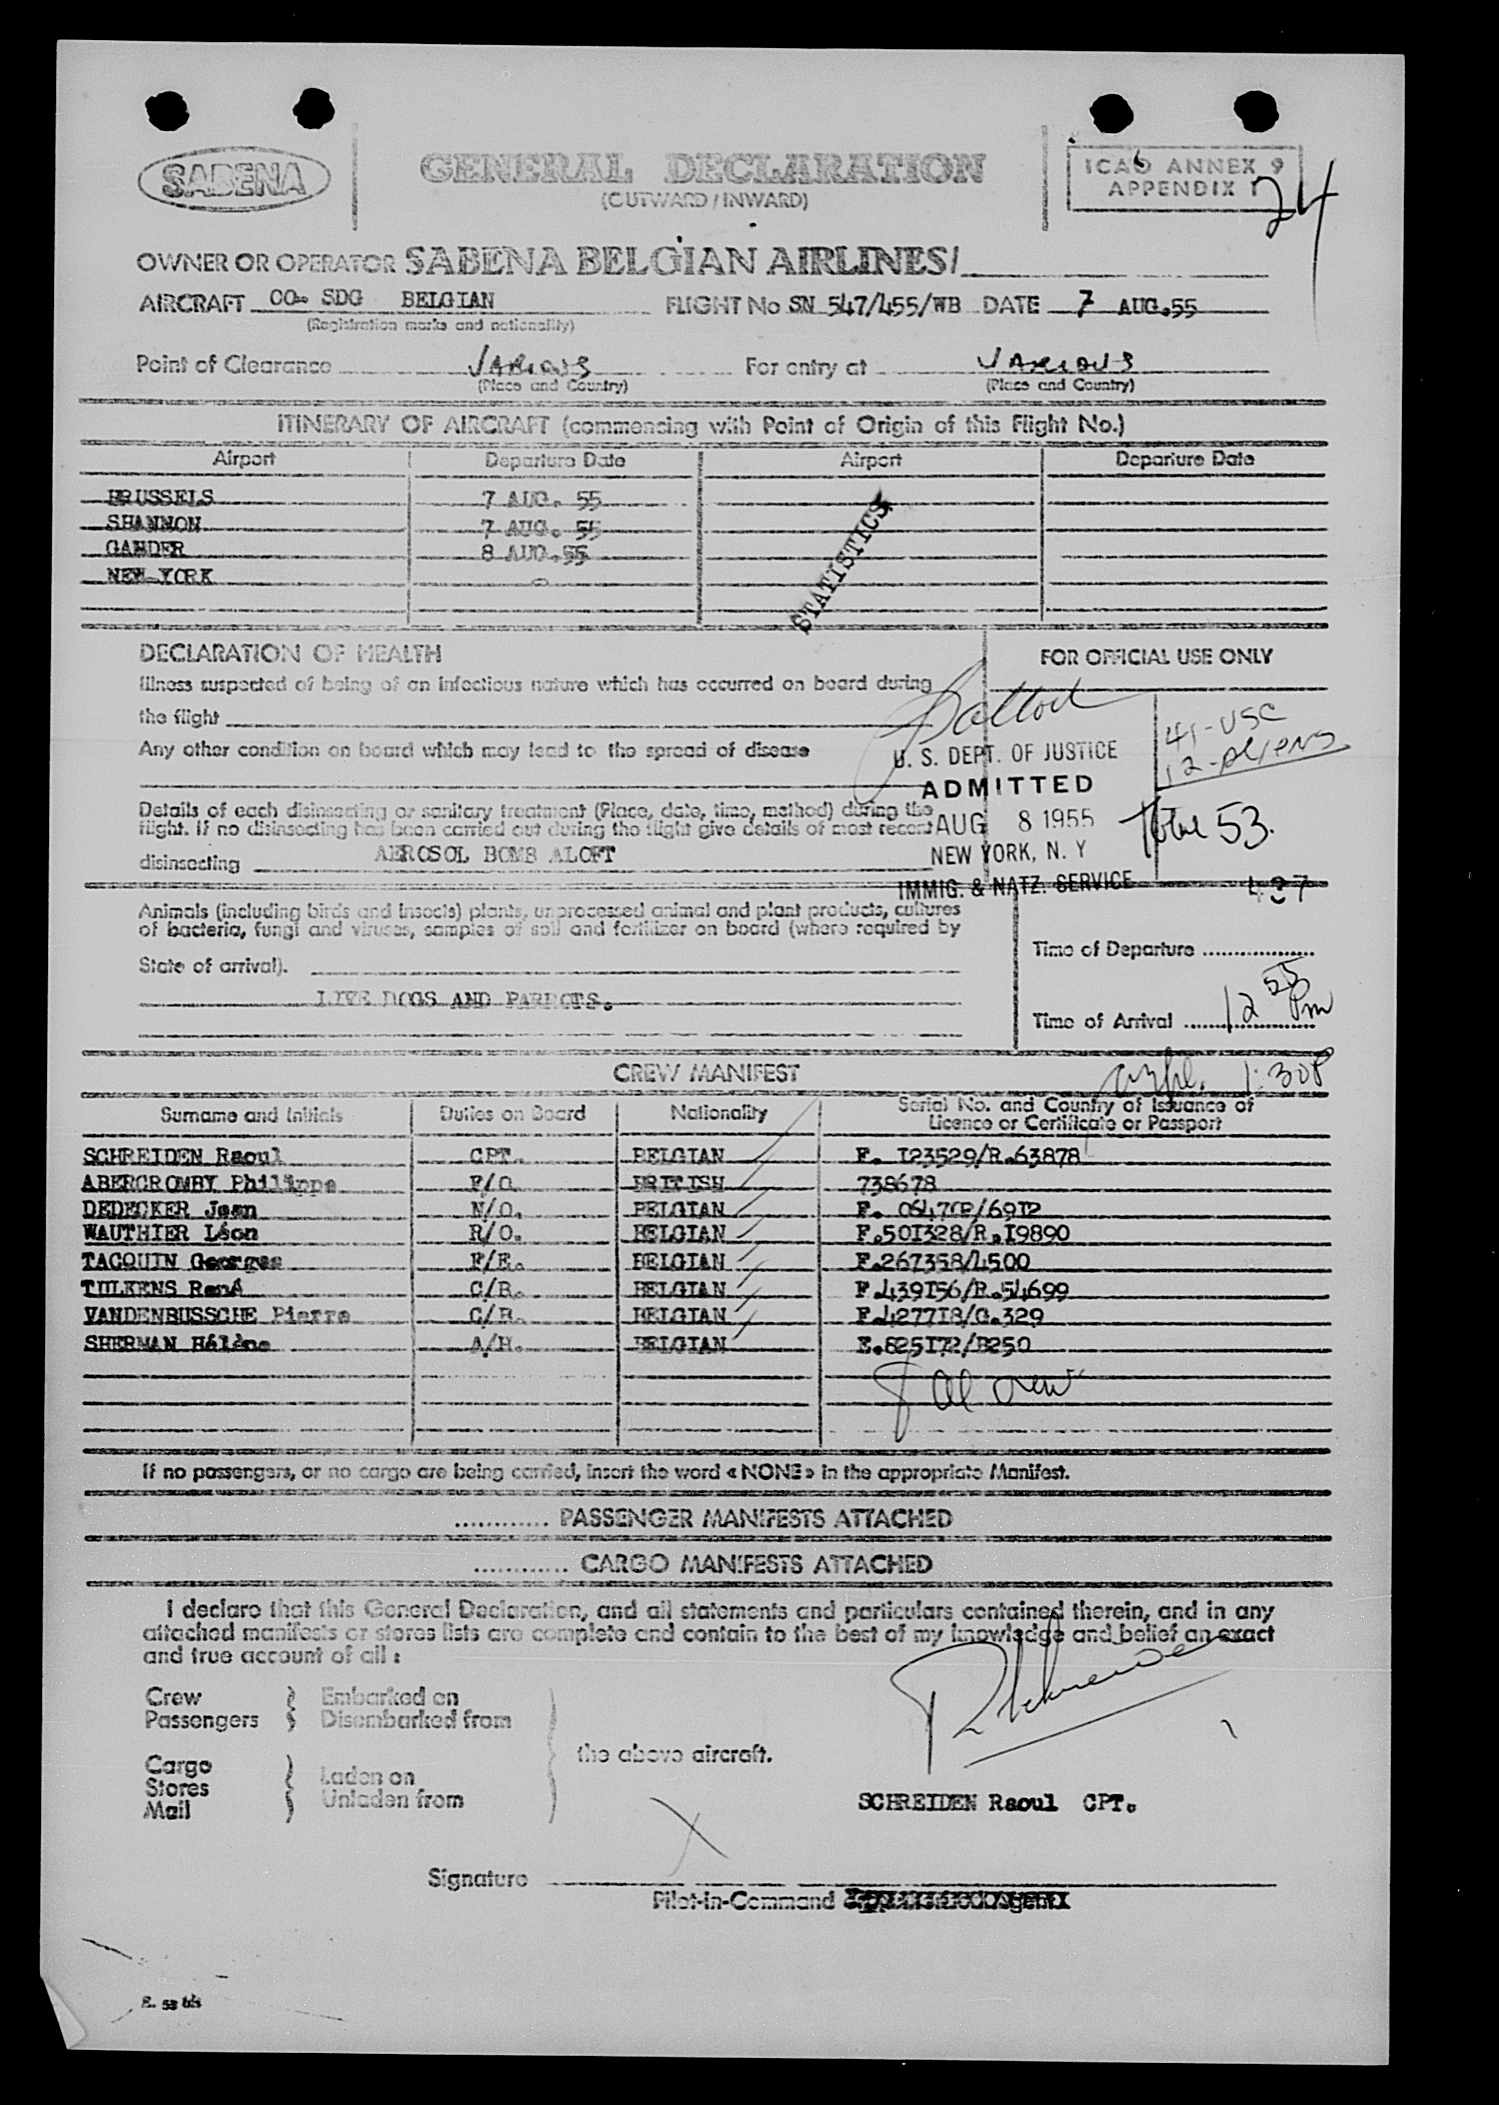 SABENA
GENERAL DECLARATION
(OUTWARD / INWARD)
ICAO ANNEX 9
APPENDIX 1
24
OWNER OR OPERATOR SABENA BELGIAN AIRLINES/
AIRCRAFT OO- SDG BELGIAN FLIGHT No SN 547/455/WB DATE 7 AUG.55
(Registration marks and nationality)
Point of Clearance VARIOUS For entry at VARIOUS
(Place and Country) (Place and Country)
ITINERARY OF AIRCRAFT (commencing with Point of Origin of this Flight No.)
Airport Departure Date Airport Departure Date
BRUSSELS 7 AUG. 55
SHANNON 7 AUG. 55
GANDER 8 AUG.55
NEW-YORK
STATISTICS
DECLARATION OF HEALTH
FOR OFFICIAL USE ONLY
Illness suspected of being of an infectious nature which has occurred on board during
the flight
41-USC
12-Aliens
Any other condition on board which may lead to the spread of disease
U. S. DEPT. OF JUSTICE
ADMITTED
Details of each disinsecting or sanitary treatment (Place, date, time, method) during the
flight. If no disinsecting has been carried out during the flight give details of most recent
AUG 8 1955
Total 53.
disinsecting AEROSOL BOMB ALOFT
NEW YORK, N. Y
IMMIG. & NATZ. SERVICE
427
Animals (including birds and insects) plants, unprocessed animal and plant products, cultures
of bacteria, fungi and viruses, samples of soil and fertilizer on board (where required by
State of arrival).
LIVE DOGS AND PARROTS.
Time of Departure
Time of Arrival 12 55 Pm
1:30P
CREW MANIFEST
Surname and Initials Duties on Board Nationality Serial No. and Country of Issuance of
Licence or Certificate or Passport
SCHREIDEN Raoul CPT. BELGIAN F. I23529/R.63878
ABERCROMBY Philippe F/O. BRITISH 738678
DEDECKER Jean N/O. BELGIAN
WAUTHIER Léon R/O. BELGIAN F.50I328/R.I9890
TACQUIN Georges F/E. BELGIAN F.267358/4500
TULKENS René C/B. BELGIAN F.439I56/R.54699
VANDENBUSSCHE Pierre C/B. BELGIAN F.4277I8/G.329
SHERMAN Hélène A/H. BELGIAN E.825I72/B250
8 Al crew
If no passengers, or no cargo are being carried, insert the word « NONE » in the appropriate Manifest.
............ PASSENGER MANIFESTS ATTACHED
............ CARGO MANIFESTS ATTACHED
I declare that this General Declaration, and all statements and particulars contained therein, and in any
attached manifests or stores lists are complete and contain to the best of my knowledge and belief an exact
and true account of all :
Crew
Passengers
Embarked on
Disembarked from
the above aircraft.
Cargo
Stores
Mail
Laden on
Unladen from
SCHREIDEN Raoul CPT.
Signature
Pilot-in-Command
R. 53 bis